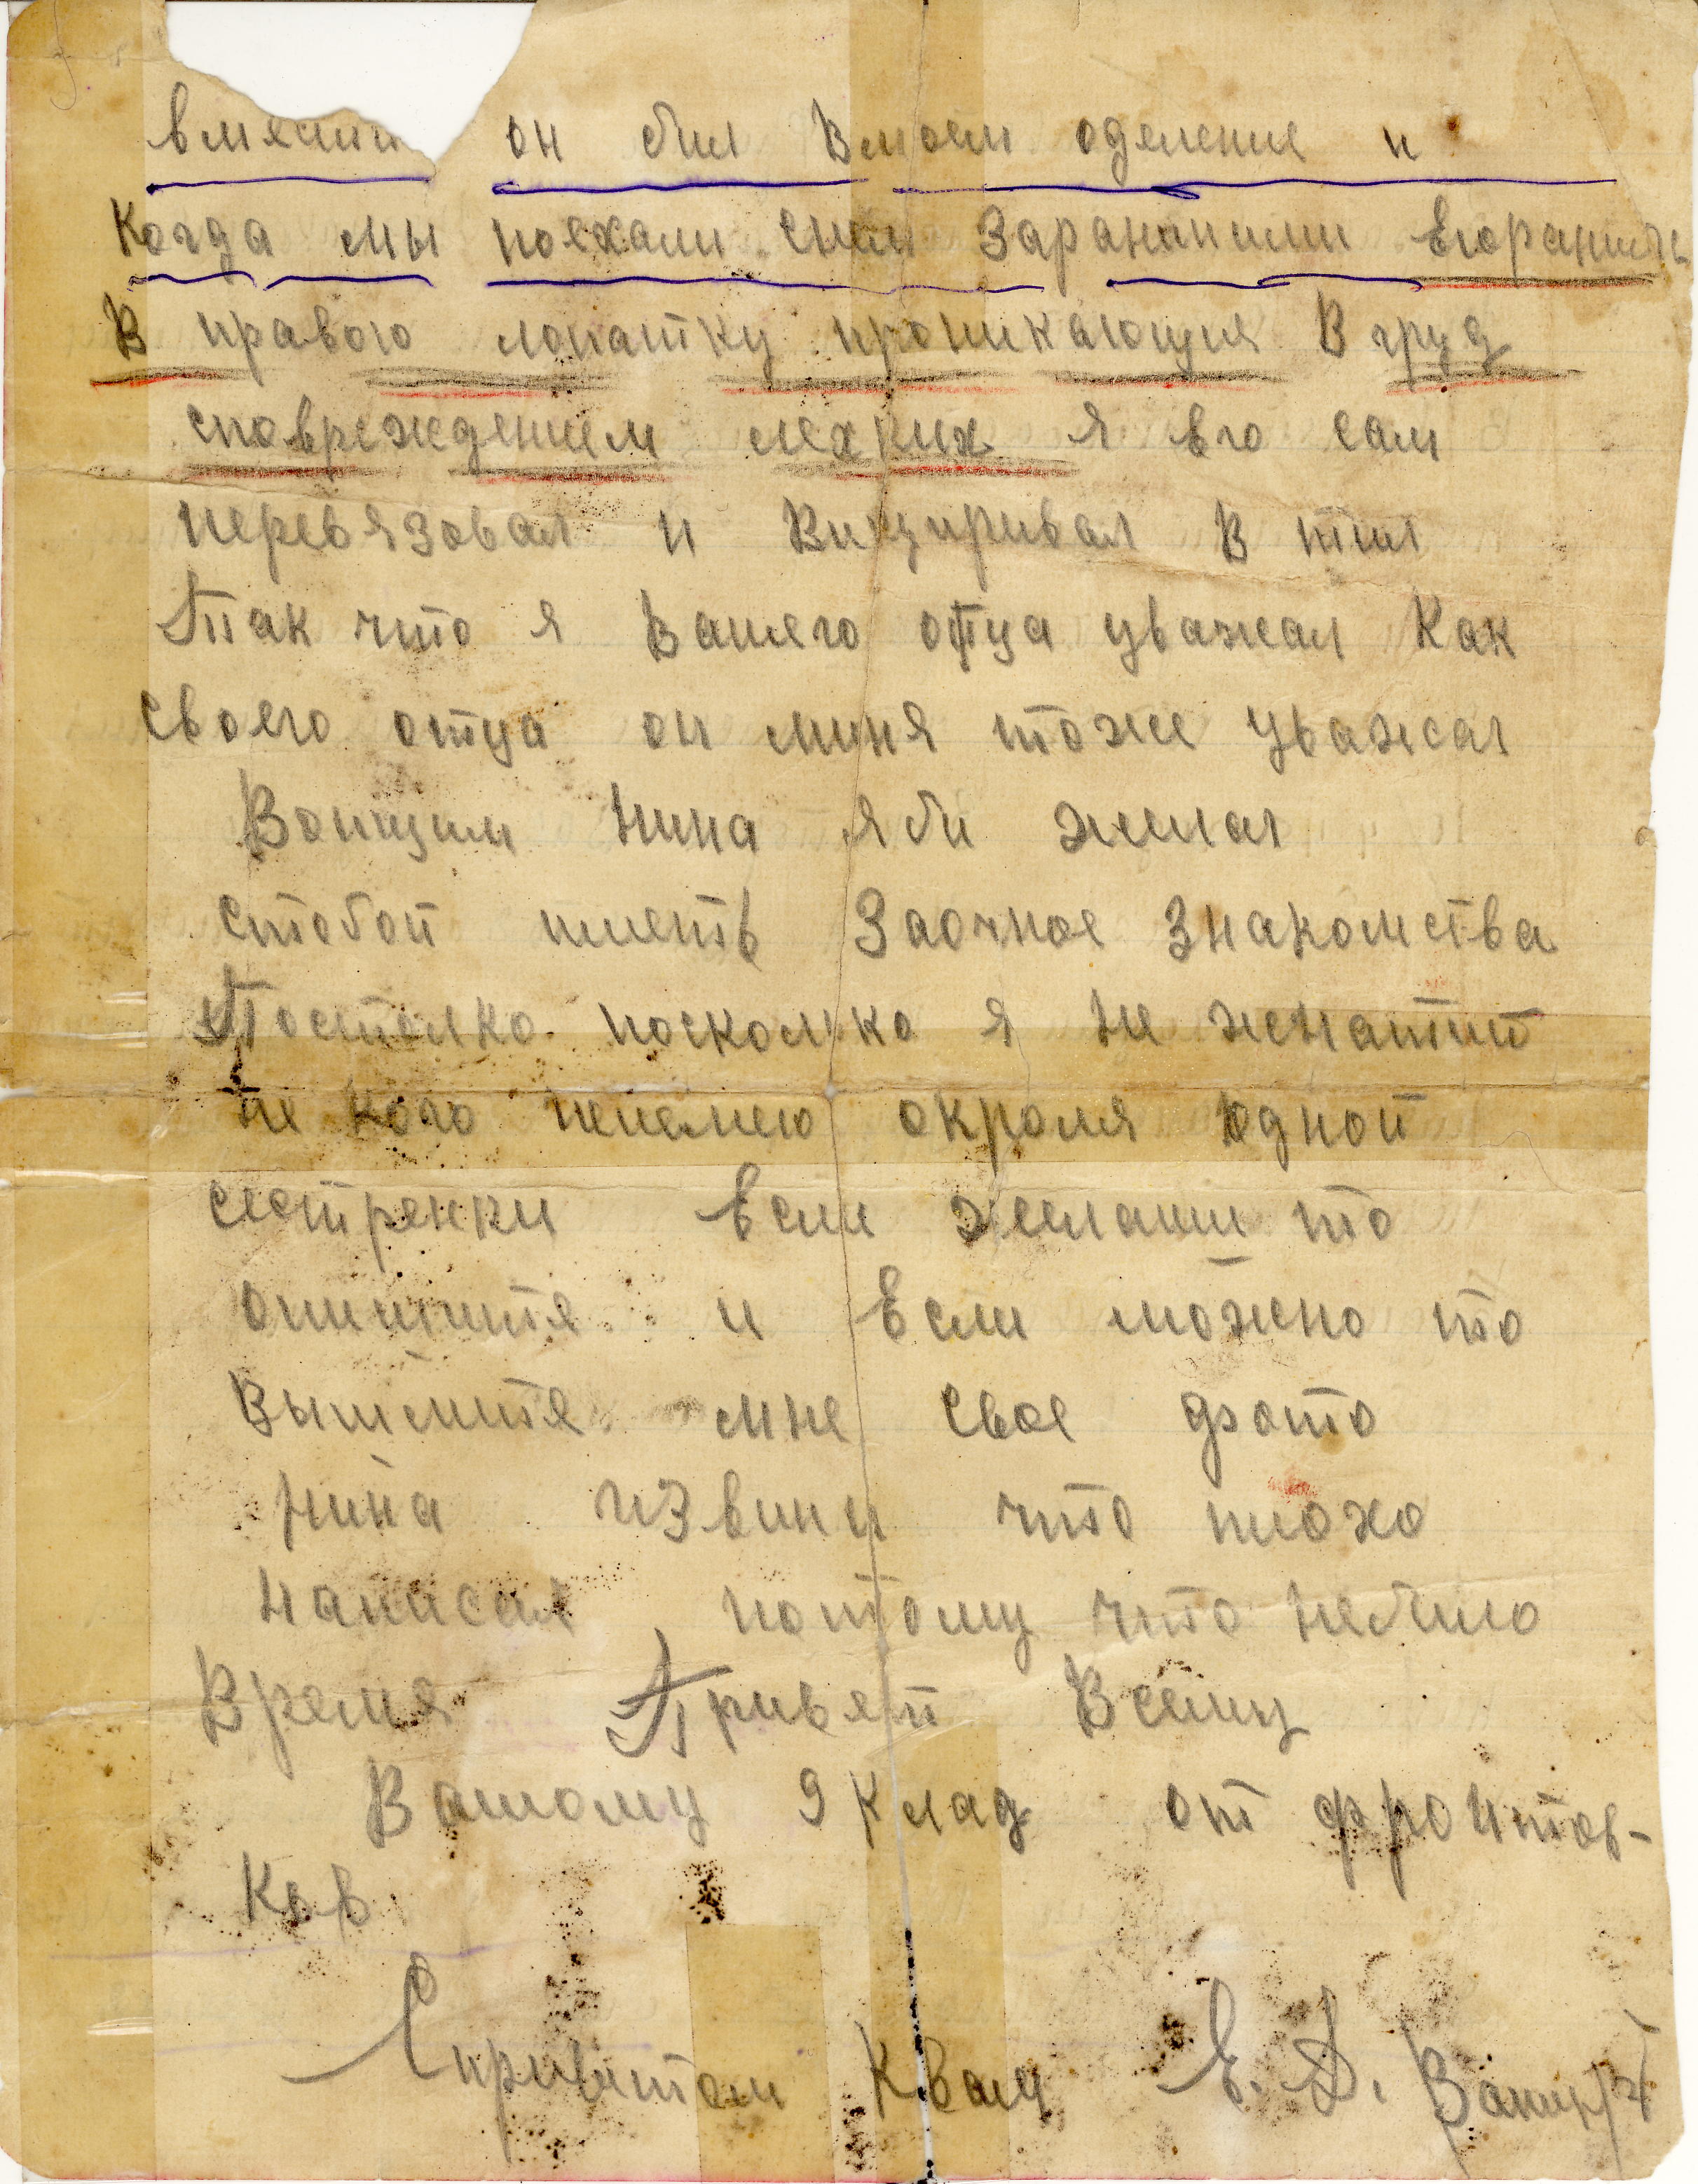 он был вмоем оделение и
Когда мы поехали сним Зараниними Егоранили
В правою лопатку проникающия В груд
сповреждением лехких я его сам
перевязовал и В тил
Так что я Вашего отца уважал Как
своего отца он миня тоже уважал
Вопщим Нина я би желал
стобой иметь Заочное Знакомства
Постолко посколко я не женатий
не кого неемею окромя одной
сестренки Если желаиш то
опишите и Если можно то
Вышлите мне свое фото
Нина извини что плохо
написал потому что небило
Время Привет Всему
Вашому от фронтов-
ков
Сприветом Квам Е. Д.